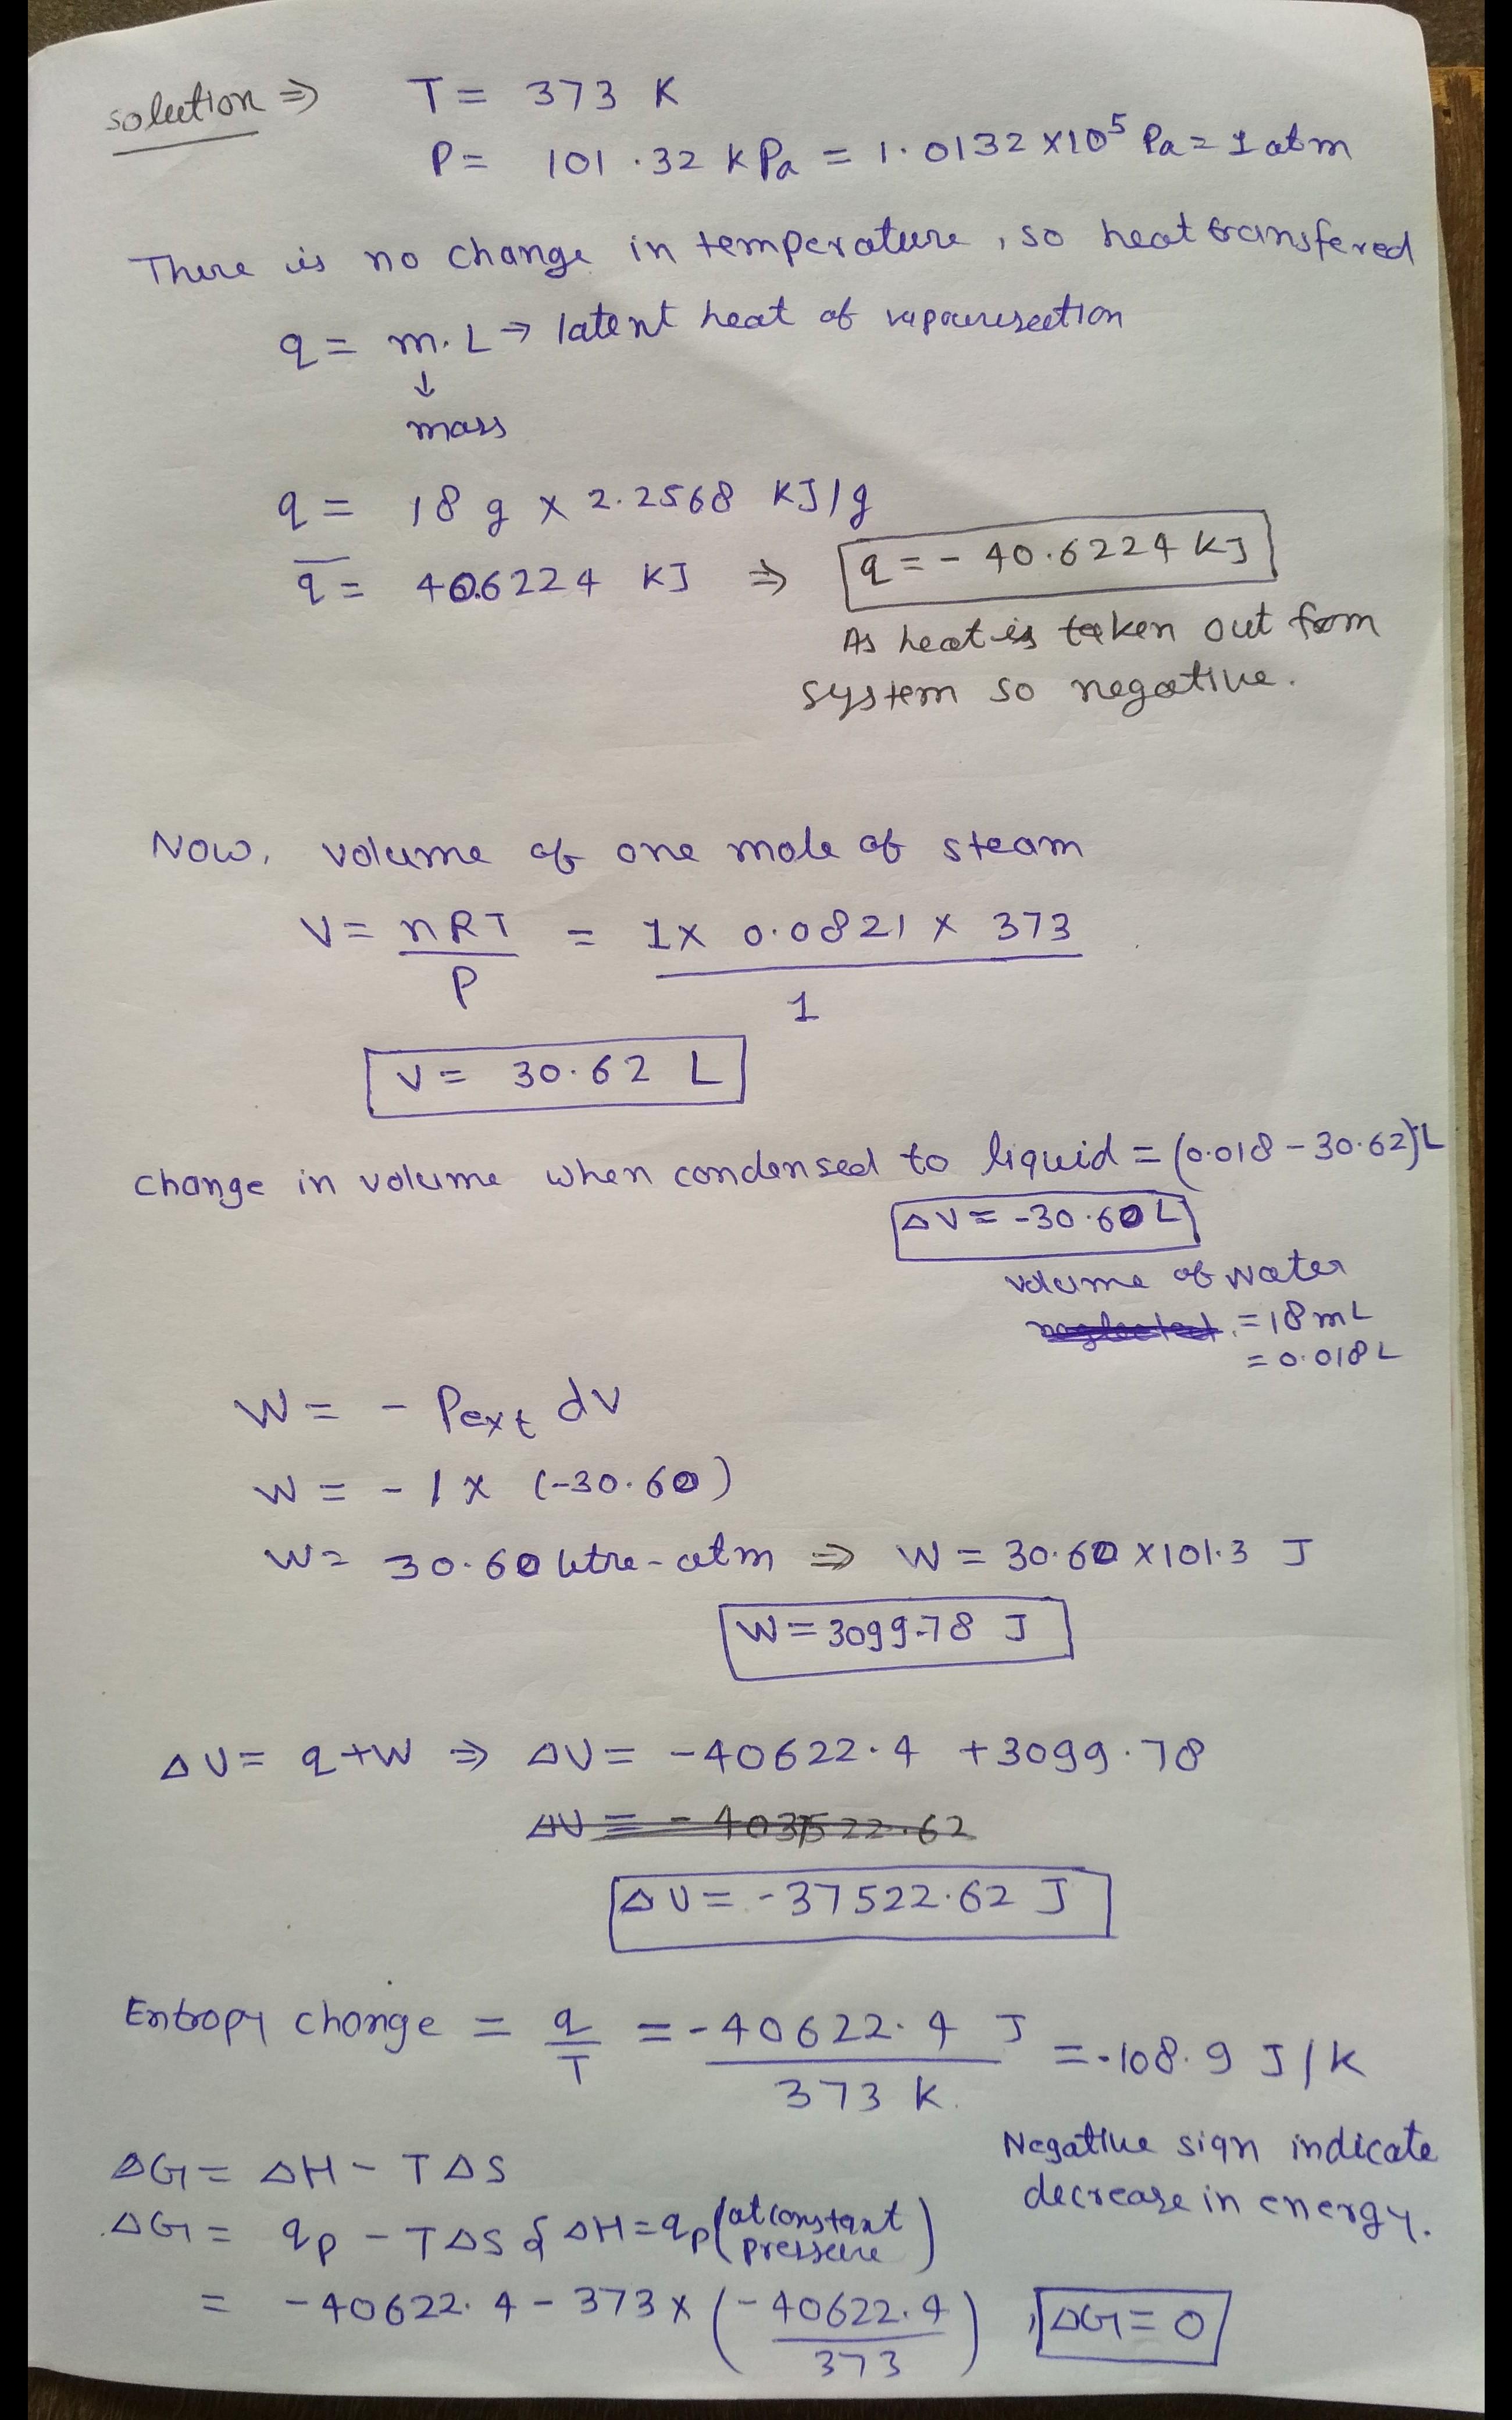 solution ⇒ T = 373 K
P = 101.32 kPa = 1.0132 × 10⁵ Pa = 1 atm
There is no change in temperature, so heat transfered
q = m.L → latent heat of vapourisation
↓
mass
q = 18 g × 2.2568 KJ/g
q = 40.6224 KJ ⇒ q = - 40.6224 KJ
As heat is taken out from
system so negative.
Now, volume of one mole of steam
V = nRT/P = 1 × 0.0821 × 373/1
V = 30.62 L
change in volume when condensed to liquid = (0.018 - 30.62) L
ΔV = -30.60 L
volume of water
neglected. = 18 mL
= 0.018 L
W = - Pext dV
W = - 1 × (-30.60)
W = 30.60 litre-atm ⇒ W = 30.60 × 101.3 J
W = 3099.78 J
ΔU = q + W ⇒ ΔU = -40622.4 + 3099.78
ΔU = -37522.62 J
Entropy change = q/T = -40622.4 J/373 K = -108.9 J/K
Negative sign indicate
decrease in energy.
ΔG = ΔH - TΔS
ΔG = qp - TΔS { ΔH = qp (at constant pressure)
= -40622.4 - 373 × (-40622.4/373), ΔG = 0